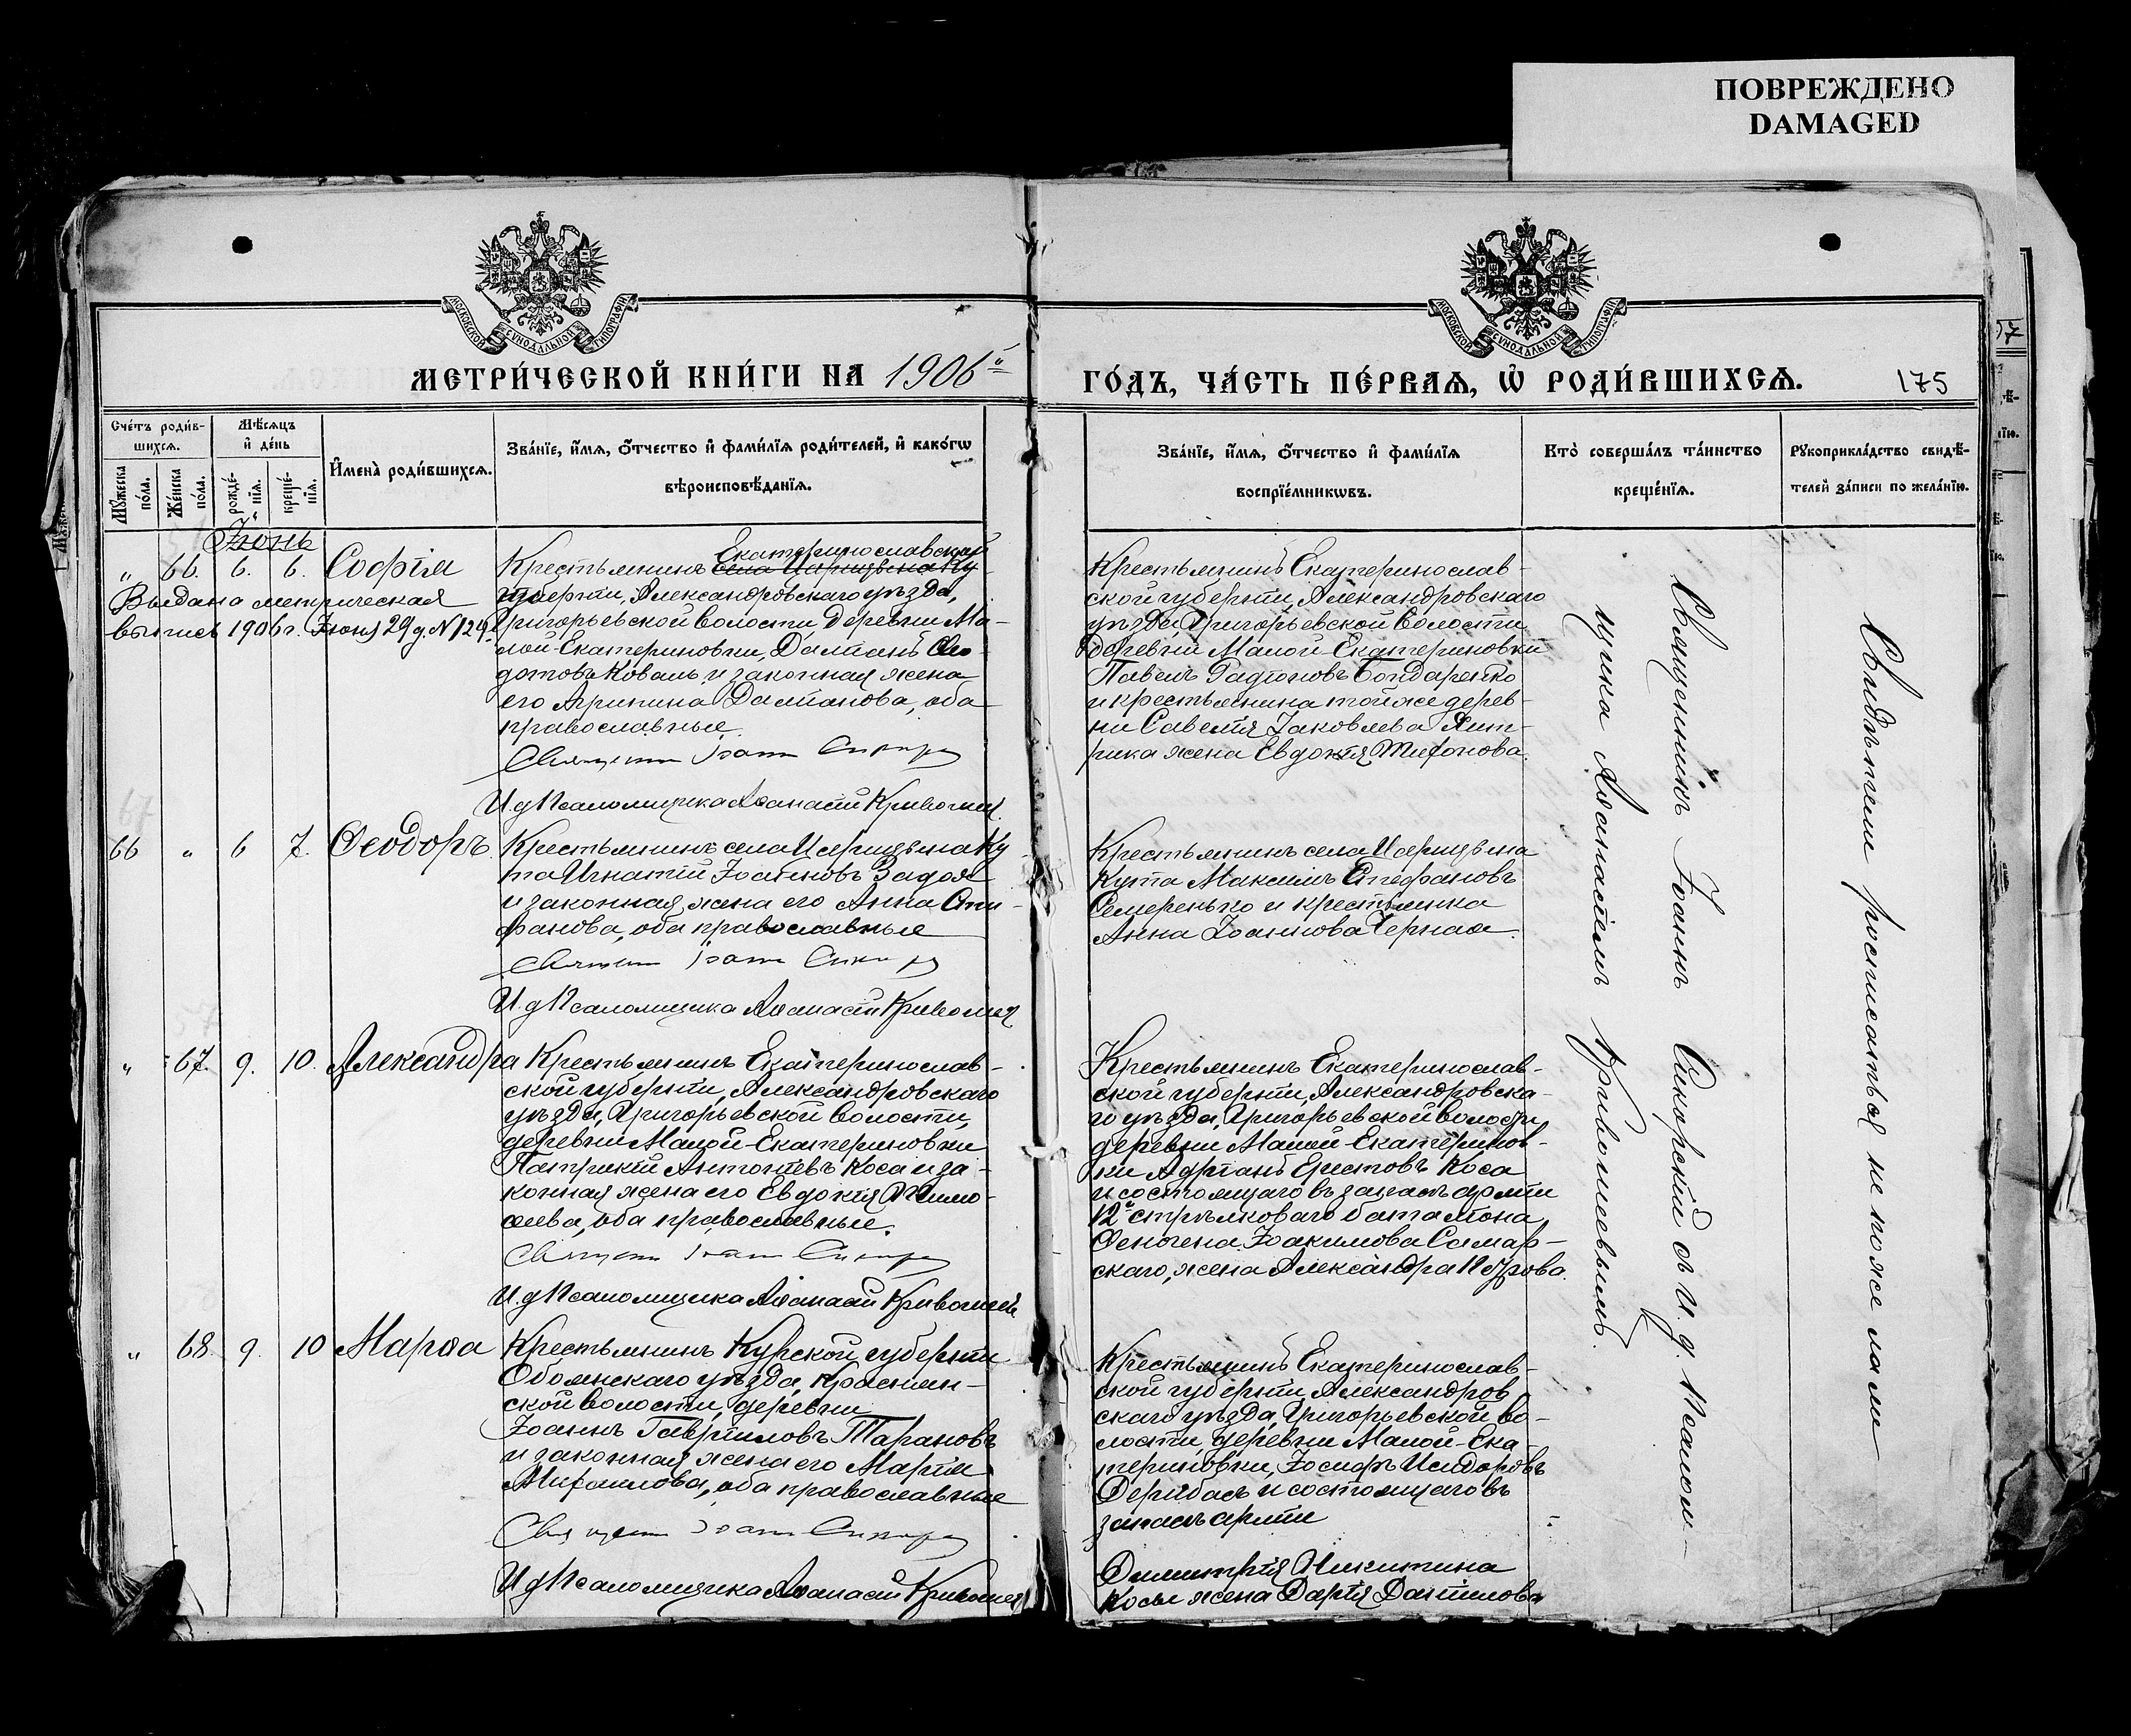 ПОВРЕЖДЕНО
DAMAGED
МОСКОВСКОЙ СѴНОДАЛЬНОЙ ТИПОГРАФІИ
МОСКОВСКОЙ СѴНОДАЛЬНОЙ ТИПОГРАФІИ
МЕТРИ́ЧЕСКОЙ КНИ́ГИ НА 1906й
ГО́ДЪ, ЧА́СТЬ ПЕ́РВАѦ, Ѿ РОДИ́ВШИХСѦ.
175
Сче́тъ роди́в-
шихсѧ.
Мꙋ́жеска по́ла.
Же́нска по́ла.
Мѣ́сѧцъ
и҆ де́нь
рожде́-нїѧ.
креще́-нїѧ.
И҆мена̀ роди́вшихсѧ.
Зва́нїе, и҆́мѧ, ѻ҆́тчество и҆ фами́лїѧ роди́телей, и҆ како́гѡ
вѣроисповѣ́данїѧ.
Зва́нїе, и҆́мѧ, ѻ҆́тчество и҆ фами́лїѧ
воспрїе́мникѡвъ.
Кто̀ соверша́лъ та́инство
креще́нїѧ.
Рꙋкоприкла́дство свидѣ́-
телей за́писи по жела́нїю.
Іюнь
„ 66. 6. 6. Софія
Выдана метрическая
выпись 1906 г. Іюня 29 д. N 124.
Екатеринославской
Крестьянинъ села Царицына Ку
губерніи, Александровскаго уѣзда,
Григорьевской волости, деревни Ма-
лой-Екатериновки, Даміанъ Ѳео-
дотовъ Коваль и законная жена
его Агрипина Даміанова, оба
православные.
Священн Іоанн Сикорс
И. д. Псаломщика Аѳанасій Кривошей.
Крестьянинъ Екатеринослав-
ской губерніи, Александровскаго
уѣзда, Григорьевской волости
деревни Малой-Екатериновки
Павелъ Радіоновъ Бондаренко
и крестьянина той же дерев-
ни Савелія Іаковлева
жена Евдокія Тихонова.
66 „ 6 7. Ѳеодоръ.
Крестьянинъ села Царицына Ку
та Игнатій Іоанновъ Задоя
и законная жена его Анна Сте-
фанова, оба православные
Священн Іоанн Сикорс
И. д. Псаломщика Аѳанасій Кривошей
Крестьянинъ села Царицына
Кута Максимъ Стефановъ
Семеренько и крестьянка
Анна Іоаннова Черная.
„ 67. 9. 10. Александра
Крестьянинъ Екатеринослав-
ской губерніи, Александровскаго
уѣзда, Григорьевской волости,
деревни Малой-Екатериновки
Патрикій Антоніевъ Коса и за-
конная жена его Евдокія Тимо-
ѳеева, оба православные.
Священн Іоанн Сикорс
И. д. Псаломщика Аѳанасій Кривошей
Крестьянинъ Екатеринослав-
ской губерніи, Александровска-
го уѣзда, Григорьевской волости
деревни Малой-Екатеринов-
ки Адріанъ Коса
и состоящаго въ запасѣ арміи
12го стрѣлковаго баталіона,
Іоакимова Самар-
скаго, жена Александра Петрова.
„ 68. 9. 10 Марѳа
Крестьянинъ Курской губерніи
Обоянскаго уѣзда,
ской волости, деревни
Іоаннъ Гавріиловъ Тарановъ
и законная жена его Марія
Михаилова, оба православные
Священн Іоанн Сикорс
И. д. Псаломщика Аѳанасій Кривошей
Крестьянинъ Екатеринослав-
ской губерніи, Александров
скаго уѣзда, Григорьевской во-
лости, деревни Малой-Ека-
териновки, Іосифъ Исидоровъ
Дерибасъ и состоящаго въ
запасѣ арміи
Димитрія Никитина
Косы жена Дарія Даніилова
Священникъ Іоаннъ Сикорскій съ И. д. Псалом-
щика Аѳанасіемъ Кривошеевымъ.
Свидѣтели росписаться не пожелали